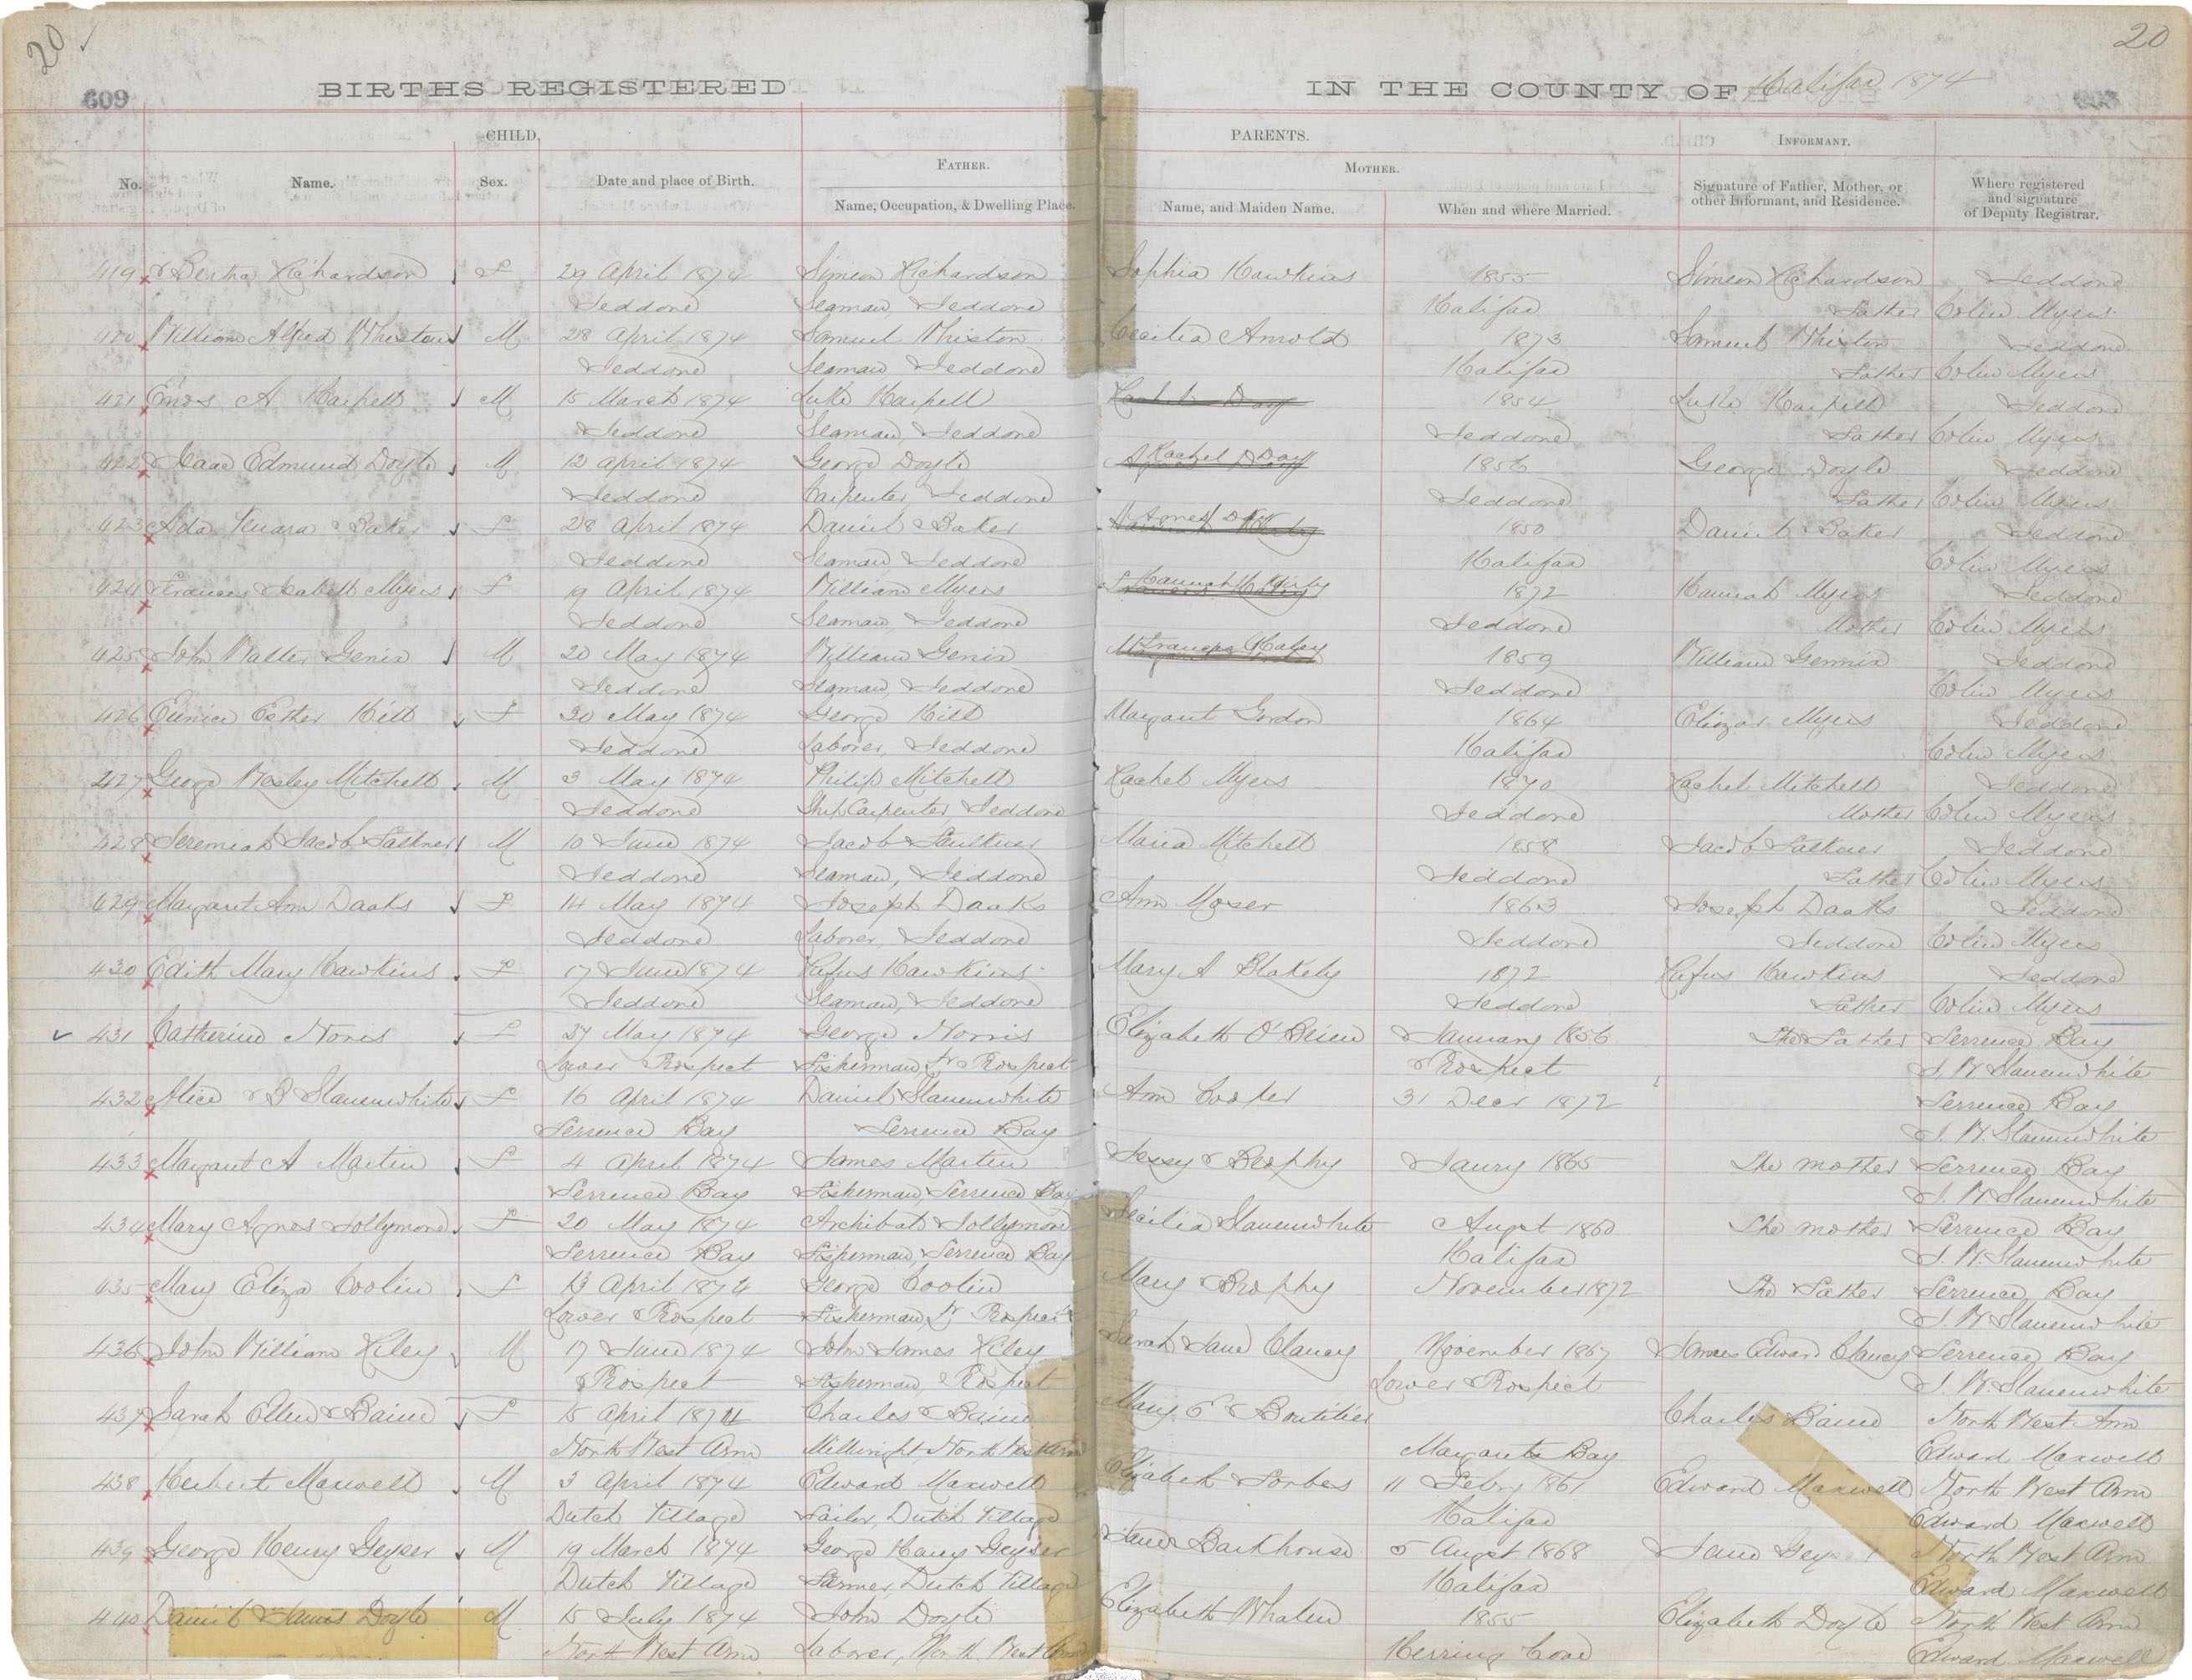 20
20
609
BIRTHS REGISTERED IN THE COUNTY OF Halifax 1874
CHILD, PARENTS. INFORMANT.
FATHER. MOTHER.
No. Name. Sex. Date and place of Birth. Name, Occupation, & Dwelling Place. Name, and Maiden Name. When and where Married. Signature of Father, Mother, or other Informant, and Residence. Where registered and signature of Deputy Registrar.
419 Bertha Richardson F 29 April 1874 Simeon Richardson Sophia Hawkins 1855 Simeon Richardson Seddore
Jeddore Seaman, Jeddore Halifax Father Colin Myers
William Alfred Whiston M 28 April 1874 Samuel Whiston Cecilia Arnold 1873 Samuel Whiston Jeddore
Jeddore Seaman Jeddore Halifax Father Colin Myers
421 Enos A Harpell M 15 March 1874 Luke Harpell Rachel Day 1854 Luke Harpell Jeddore
Jeddore Seaman, Jeddore Jeddore Father Colin Myers
422 Isaac Edmund Doyle M 12 April 1874 George Doyle Rachel Day 1856 George Doyle Jeddore
Jeddore Carpenter Jeddore Jeddore Father Colin Myers
423 Ada Baker F 28 April 1874 Daniel Baker Agnes 1850 Daniel Baker Jeddore
Jeddore Seaman Jeddore Halifax Colin Myers
424 Frances Isabell Myers F 19 April 1874 William Myers Hannah 1872 Hannah Myers Jeddore
Jeddore Seaman Jeddore Jeddore Mother Colin Myers
425 John Walter Genix M 20 May 1874 William Genix 1859 William Gennix Jeddore
Jeddore Seaman, Jeddore Jeddore Colin Myers
426 Eunice Esther Hill F 30 May 1874 George Hill Margaret Gordon 1864 Eliezar Myers Jeddore
Jeddore Laborer, Jeddore Halifax Colin Myers
427 George Wesley Mitchell M 3 May 1874 Philip Mitchell Rachel Myers 1870 Rachel Mitchell Jeddore
Jeddore Ship Carpenter, Jeddore Jeddore Mother Colin Myers
428 Jeremiah Jacob Falkner M 10 June 1874 Jacob Faulkner Maria Mitchell 1858 Jacob Falkner Jeddore
Jeddore Seaman, Jeddore Jeddore Father Colin Myers
429 Margaret Ann Daaks F 14 May 1874 Joseph Daaks Ann Moser 1863 Joseph Daaks Jeddore
Jeddore Laborer, Jeddore Jeddore Jeddore Colin Myers
430 Edith Mary Hawkins F 17 June 1874 Rufus Hawkins Mary A Blakely 1872 Rufus Hawkins Jeddore
Jeddore Seaman, Jeddore Jeddore Father Colin Myers
431 Catherine Norris F 27 May 1874 George Norris Elizabeth O'Brien January 1856 The Father Terrence Bay
Lower Prospect Fisherman, Lr Prospect Prospect J. W. Slauenwhite
432 Alice B Slauenwhite F 16 April 1874 Daniel Slauenwhite Ann Cooper 31 Decr 1872 Terrence Bay
Terrence Bay Terrence Bay J. W. Slauenwhite
433 Margaret A Martin F 4 April 1874 James Martin Jessy Brophy Janry 1865 The mother Terrence Bay
Terrence Bay Fisherman, Terrence Bay J. W. Slauenwhite
434 Mary Agnes Jollymore F 20 May 1874 Archibald Jollymore Secilia Slauenwhite August 1860 The mother Terrence Bay
Terrence Bay Fisherman, Terrence Bay Halifax J. W. Slauenwhite
435 Mary Eliza Coolin F 13 April 1874 George Coolin Mary Brophy November 1872 The Father Terrence Bay
Lower Prospect Fisherman, Lr Prospect J. W. Slauenwhite
436 John William Kiley M 17 June 1874 John James Kiley Sarah Jane Clancy November 1867 James Edward Clancy Terrence Bay
Prospect Fisherman, Prospect Lower Prospect J. W. Slauenwhite
437 Sarah Ellen Baine F 15 April 1874 Charles Baine Mary Boutilier Charles Baine North West Arm
North West Arm Millwright, North West Arm Margarets Bay Edward Maxwell
438 Herbert Maxwell M 3 April 1874 Edward Maxwell Elizabeth Forbes 11 Febry 1861 Edward Maxwell North West Arm
Dutch Village Tailor, Dutch Village Halifax Edward Maxwell
439 George Henry Geyser M 19 March 1874 George Henry Geyser Jane Barkhouse 5 August 1868 Jane North West Arm
Dutch Village Farmer, Dutch Village Halifax Edward Maxwell
440 Daniel James Doyle M 15 July 1874 John Doyle Elizabeth Whalen 1855 Elizabeth Doyle North West Arm
North West Arm Laborer, North West Arm Herring Cove Edward Maxwell